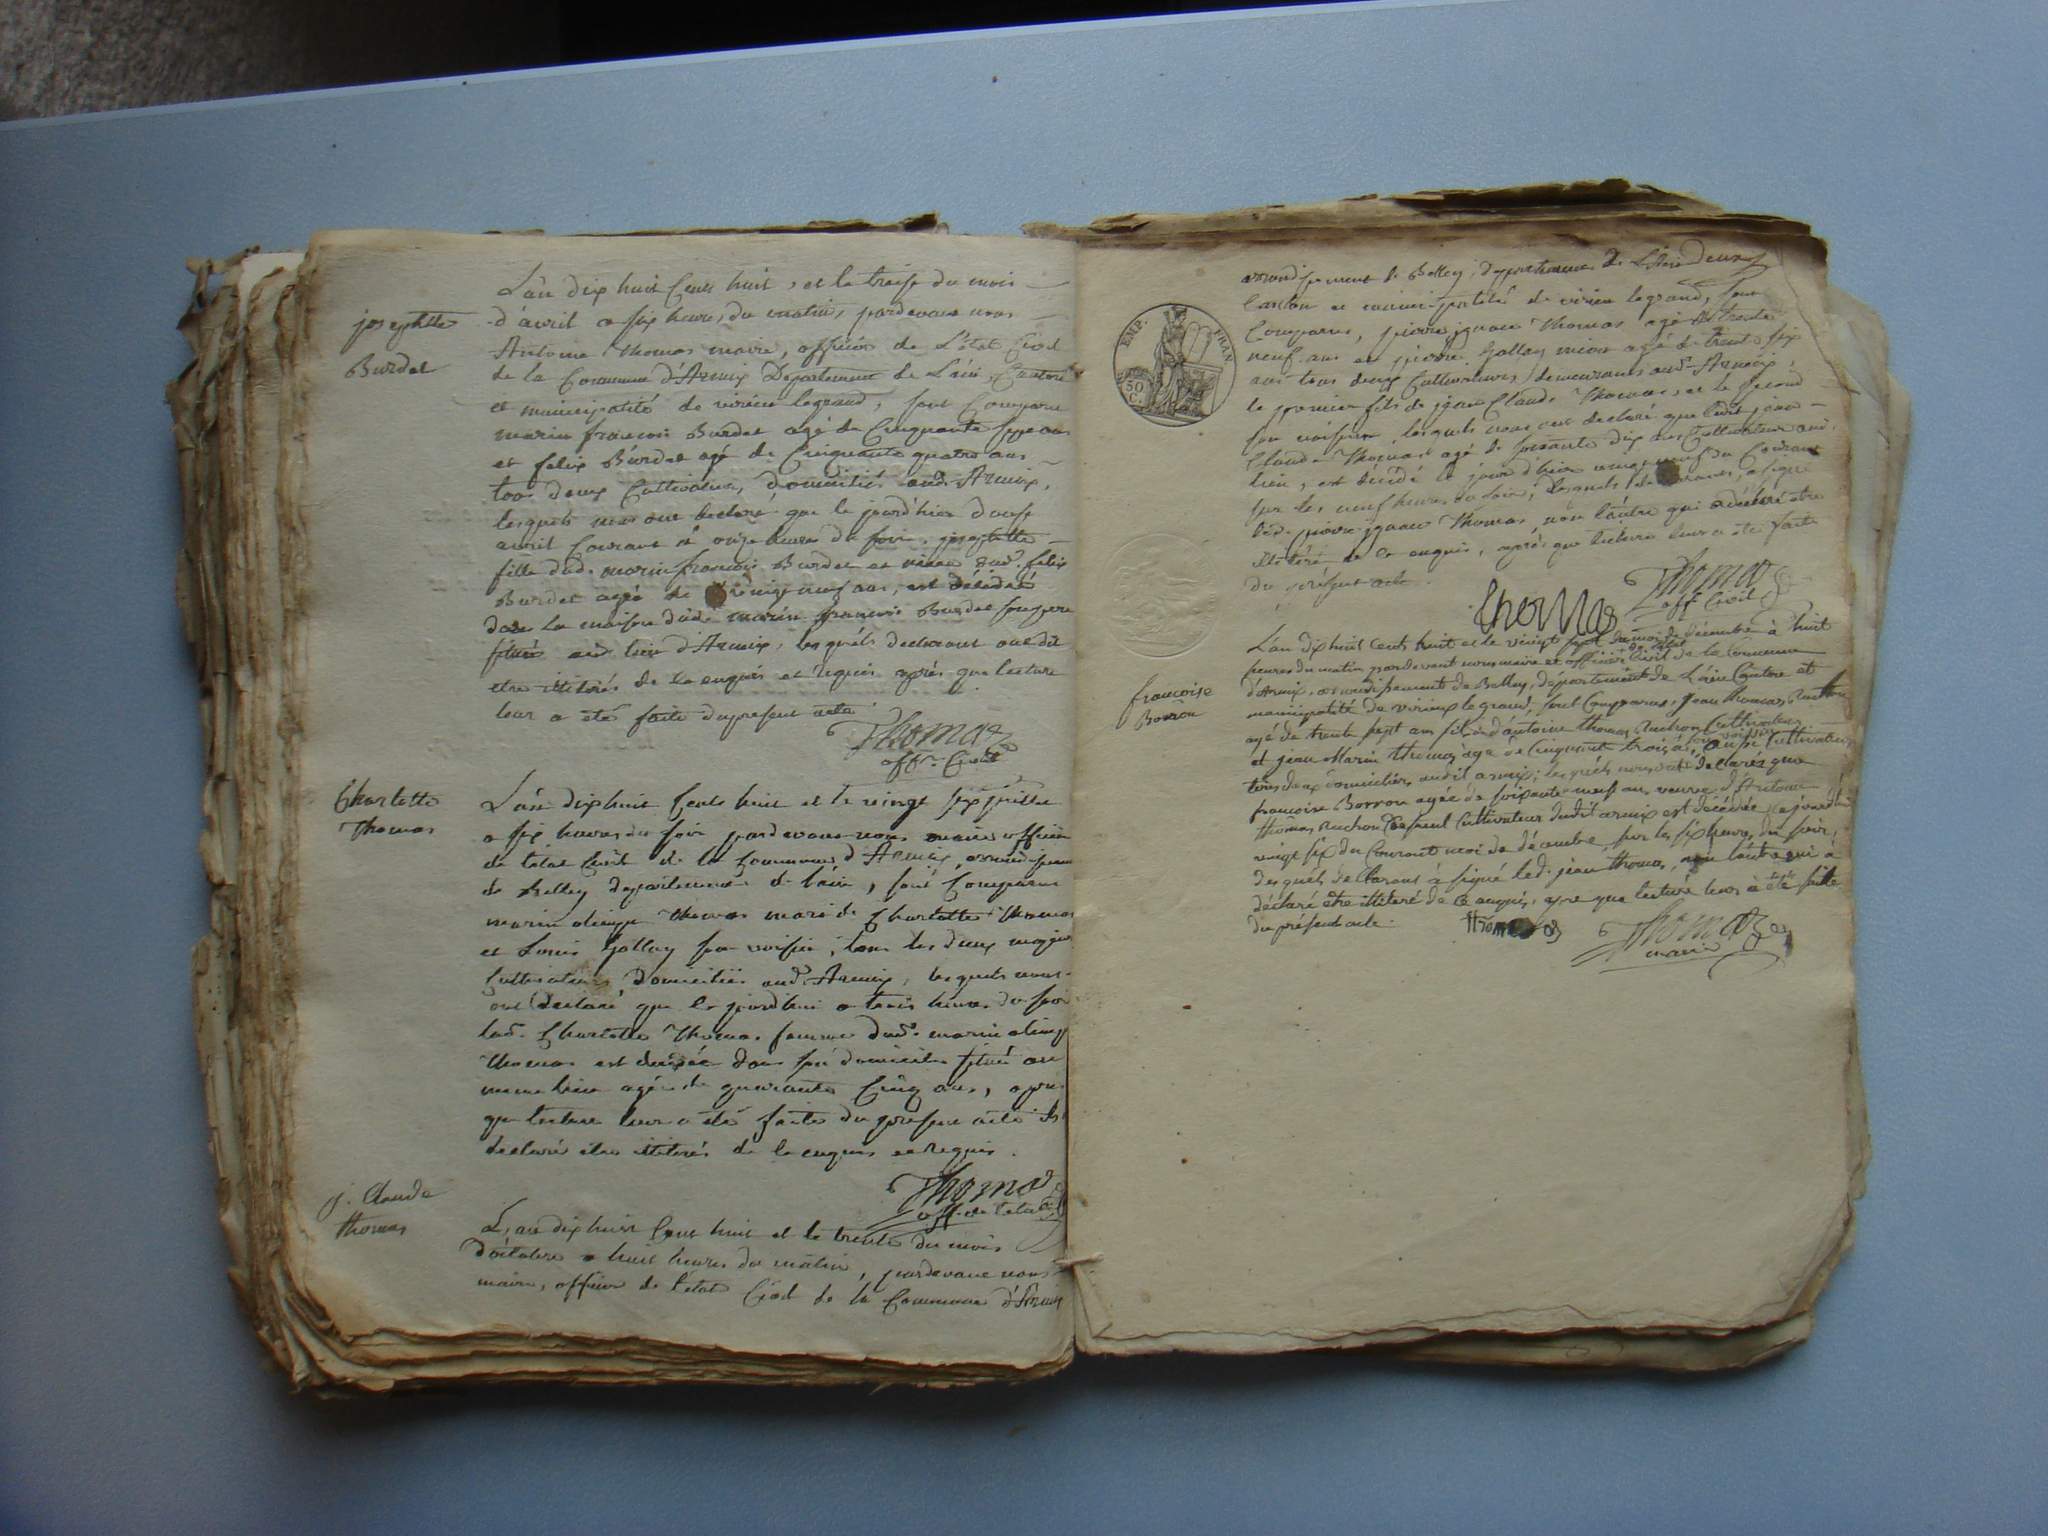 josephtte
Burdet
L'an dix huit Cents huit, et le treise du mois
d'avril a six heures du matin, pardevant nous
Antoine Thomas maire, officier de L'etat Civil
de la Commune d'Armix Departement de L'ain, Canton
et municipalité de virieu legrand, sont Comparu
marin francois Burdet agé de Cinquante sept ans
et felix Burdet agé de Cinquante quatre ans
tous deux Cultivateurs, domiciliés aud. Armix,
lesquels nous ont declaré que le jourd'hier douse
avril Courant a onze heures du soir, josephtte
fille dud. marin francois Burdet et niece dud. felix
Burdet agée de vingt neuf ans, est décédée
dans la maison dudi marin francois Burdet son pere
situé aud lieu d'Armix, lesquels declarant ont dit
etre illiterés de ce enquis et requis après que lecture
leur a été faite du present acte.
Thomas
offr. Civil
Charlotte
Thomas
L'an dix huit Cents huit et le vingt six juillet
a six heures du soir pardevant nous maire officier
de l'etat Civil de la Commune d'Armix, arrondissem
de Belley departement de l'ain, sont Comparu
marin olimpe Thomas mari de Charlotte Thomas
et Louis Gallay son voisin, tous les deux majeurs
Cultivateurs domiciliés aud. Armix, lesquels nous
ont declaré que le jourdhui a trois heures du soir
lad. Charlotte Thomas femme dud. marin olimp
Thomas est decedée dans son domicile situé au
meme lieu agée de quarante Cinq ans, apres
que lecture leur a été faite du present acte ils
declaré etre illiterés de ce enquis et requis.
Thomas
off. de l'etat
j. Claude
thomas
L'an dix huit Cent huit et le trente du mois
d'octobre a huit heures du matin, pardevant nous
maire, officier de l'etat Civil de la Commune d'Armix
EMP. FRAN
50
C.
arrondissement de Belley, departement de L'Ain
Canton et municipalité de virieu legrand, sont
Comparus, pierre ignace Thomas agé de trente
neuf ans et pierre Gallay mion agé de trente six
ans tous deux Cultivateurs demeurants aud. Armix,
le premier fils de jean Claude Thomas, et le second
son voisin, lesquels nous ont declaré que ledit jean
Claude Thomas agé de soixante dix ans Cultivateur aud.
lieu, est décédé le jour d'hier vingt neuf du Courant
sur les neuf heures du soir, desquels declarants, a signé
led. pierre ignace Thomas, non l'autre qui a déclaré etre
illitéré de ce enquis, après que lecture leur a été faite
du présent acte.
thomas
Thomas
off. Civil
francoise
Borron
L'an dix huit cents huit et le vingt sept du mois de décembre à huit
heures du matin pardevant nous maire et officier de l'état Civil de la Commune
d'Armix, arrondissement de Belley, département de L'ain Canton et
municipalité de virieux le grand, sont Comparus, jean thomas Ruchon
agé de trente sept ans fils d'antoine thomas Ruchon Cultivateur
et jean Marin thomas agé de Cinquante trois ans, son voisin aussi Cultivateur
tous deux domiciliés audit armix, lesquels nous ont déclarés que
francoise Borron agée de soixante neuf ans veuve d'Antoine
thomas Ruchon Cultivateur dudit armix est decédée ce jourd'hui
vingt six du Courant moi de décembre, sur les six heures du soir,
desquels declarants à signé led. jean thomas, non l'autre qui à
déclaré être illitéré de ce enquis, apre que lecture leur à été faitte
du présent acte.
thomas
Thomas
maire